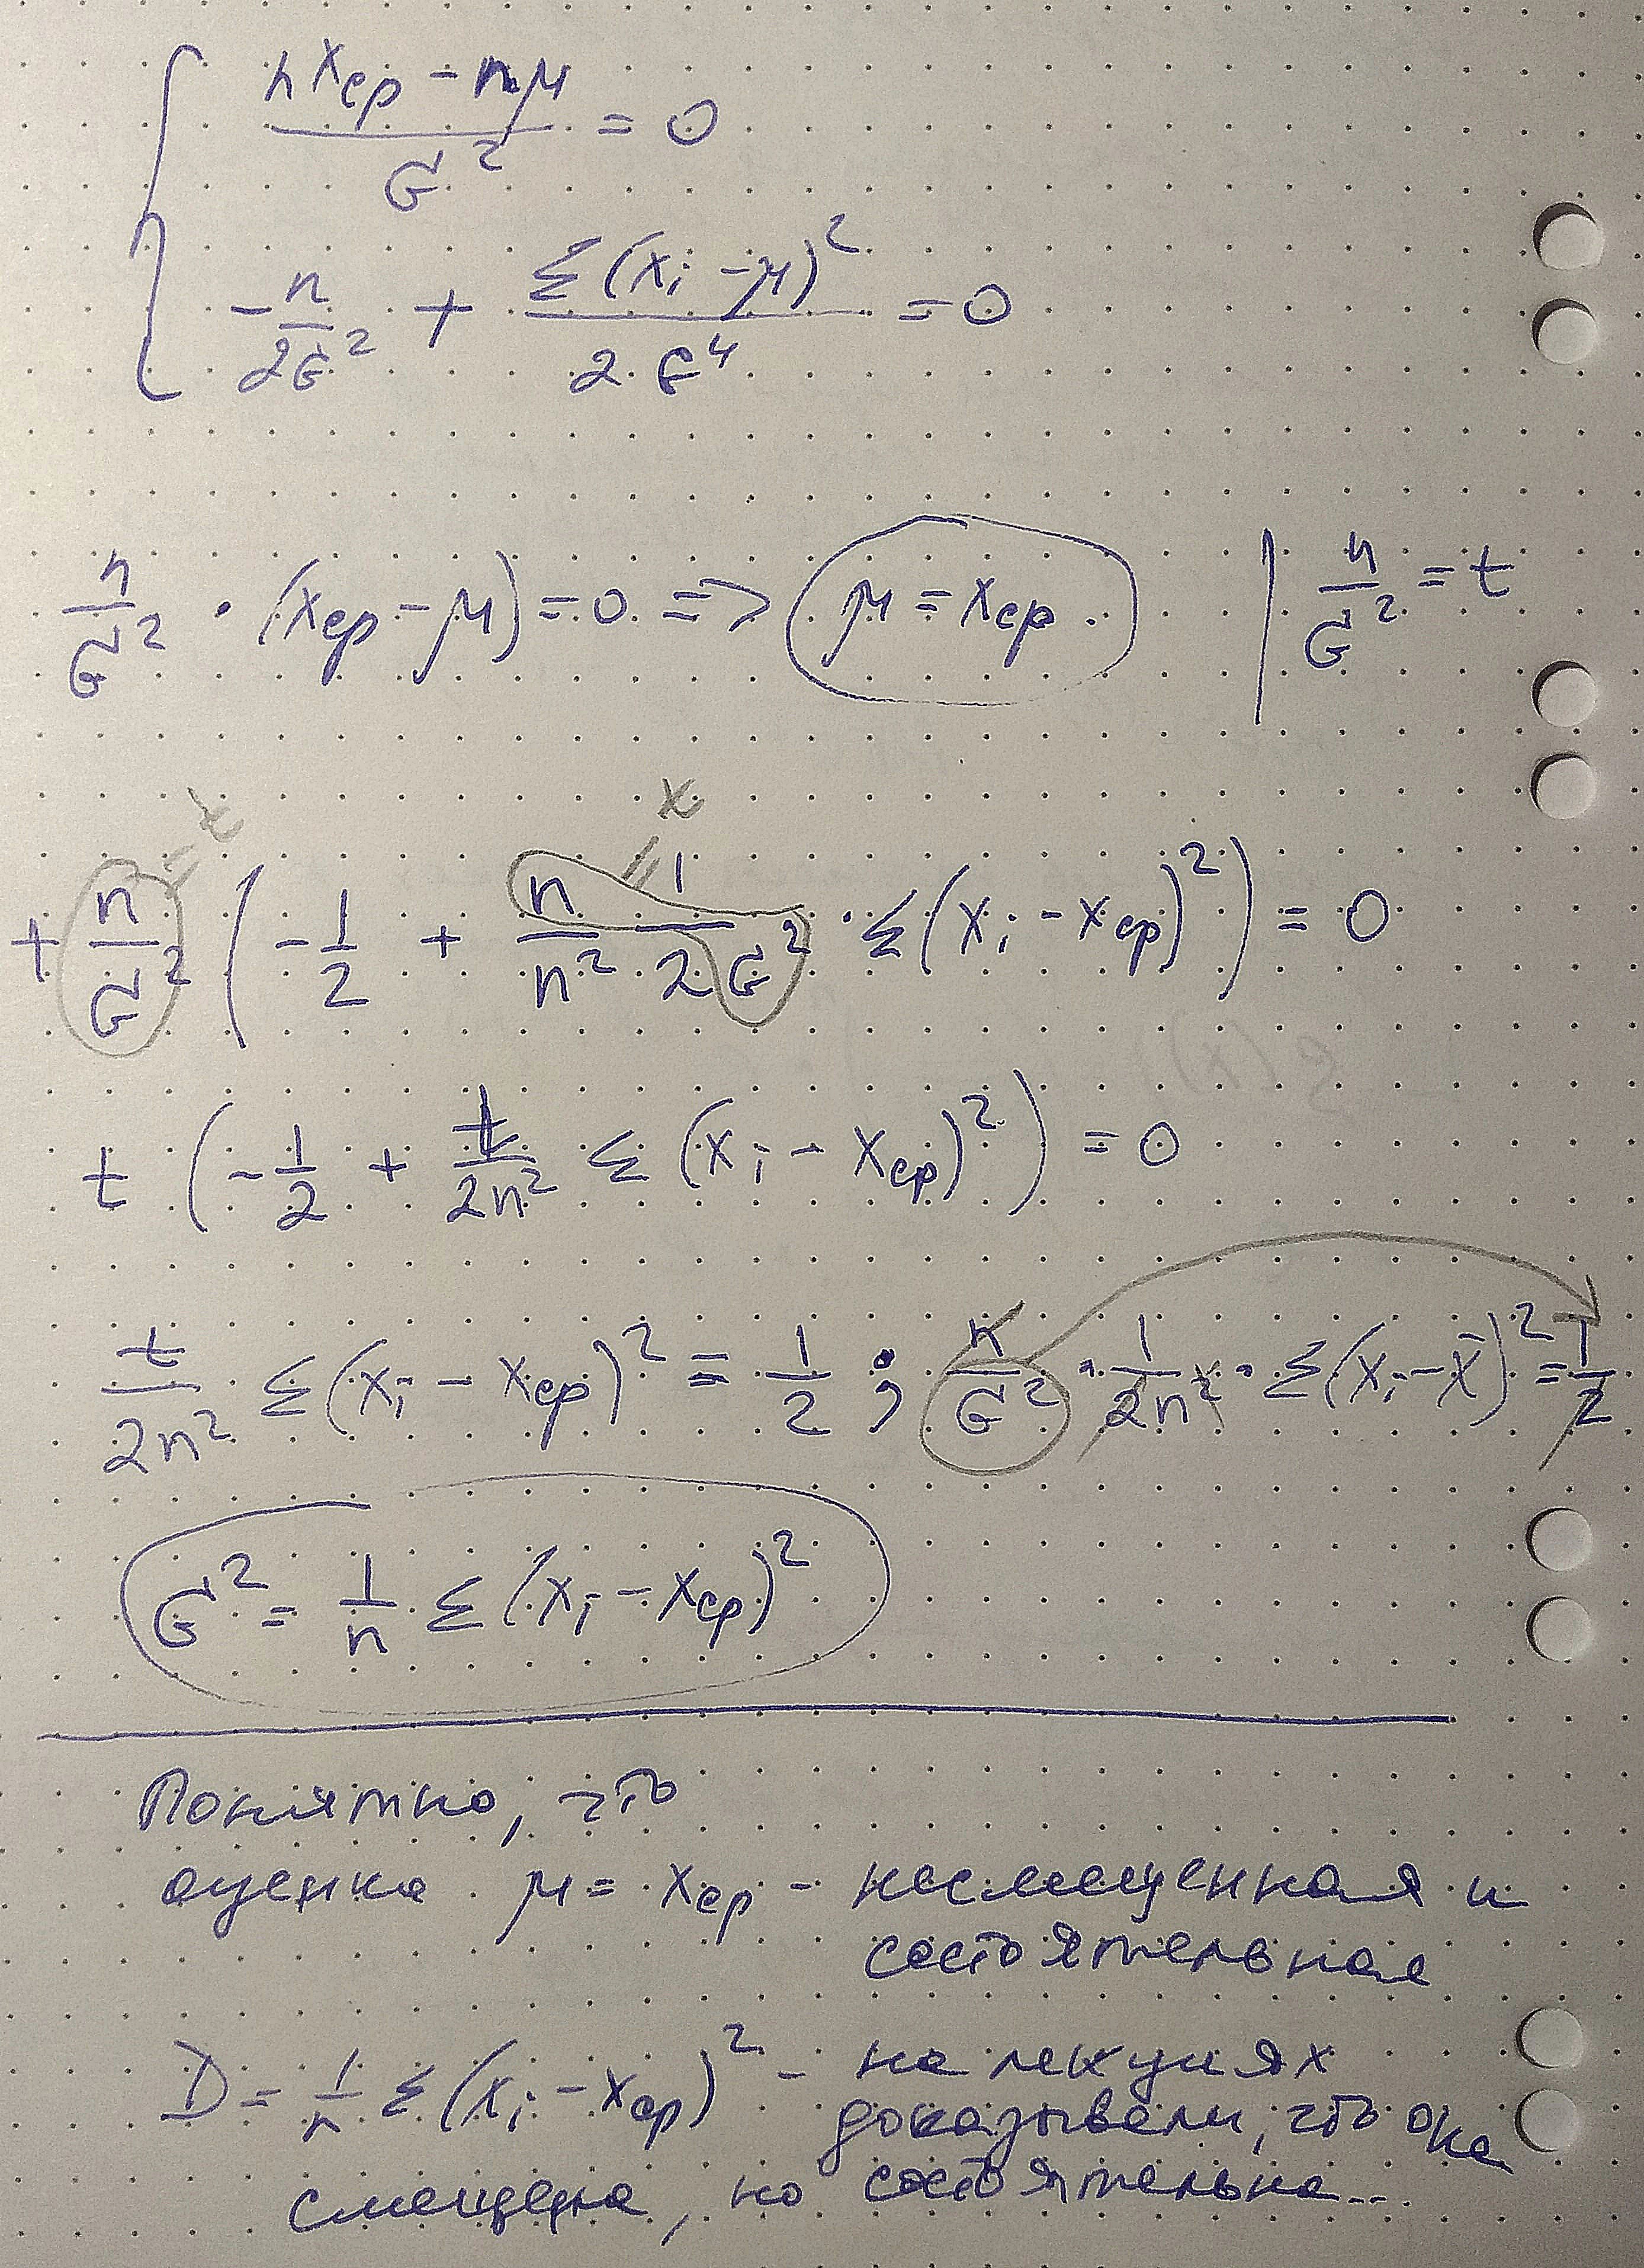 (n xср − nμ) / σ² = 0
−n/(2σ²) + Σ(xᵢ − μ)²/(2σ⁴) = 0
n/σ² · (xср − μ) = 0 => μ = xср | n/σ² = t
= t x
+ n/σ² (−1/2 + n/n² 1/(2σ²) · Σ(xᵢ − xср)²) = 0
t (−1/2 + t/(2n²) Σ(xᵢ − xср)²) = 0
t/(2n²) Σ(xᵢ − xср)² = 1/2 ; n/σ² · 1/(2n²) · Σ(xᵢ − x̄)² = 1/2
σ² = 1/n Σ(xᵢ − xср)²
Понятно, что
оценка μ = xср - несмещенная и
состоятельная
D = 1/n Σ(xᵢ − xср)² - на лекциях
доказывали, что она
смещена, но состоятельна...